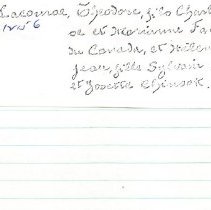 Lacourse, Théodore, fils Charl
No 6
se et Marianne Fa
du Canada, et Helen
Jean, fille Sylvain
et Josette Chinook.